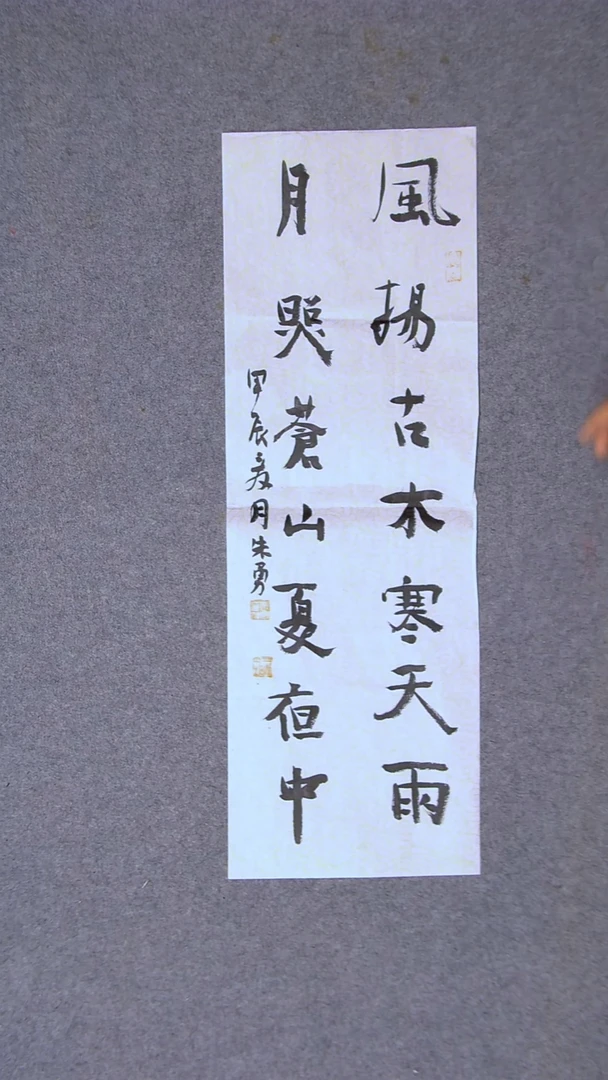 風揚古木寒天雨
月照蒼山夏夜中
甲辰夏月朱勇